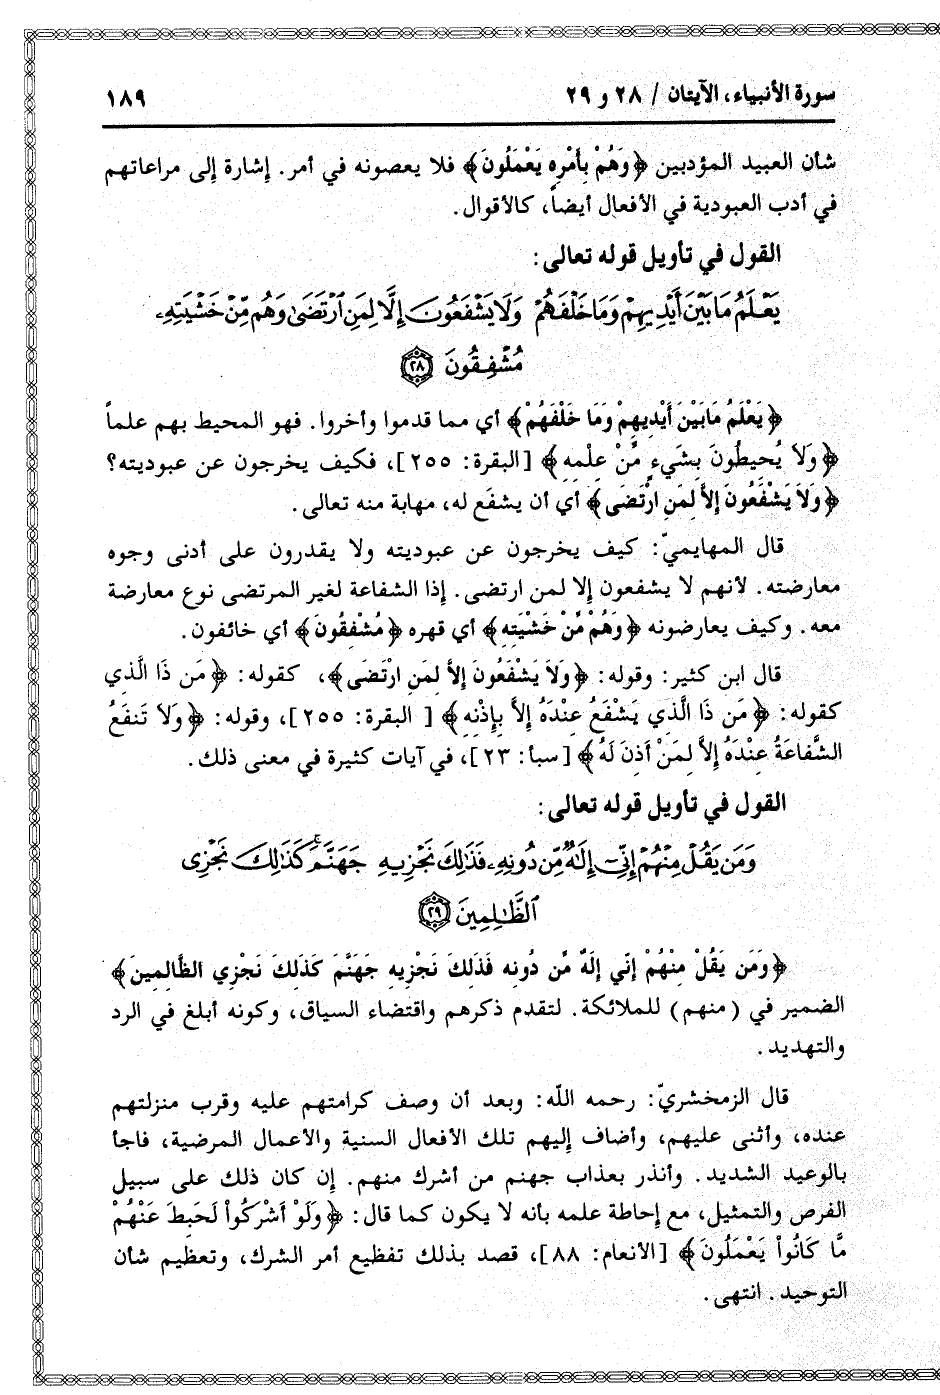 سورة الأنبياء، الآيتان / ٢٨ و ٢٩ ١٨٩
شأن العبيد المؤدبين ﴿وَهُمْ بِأَمْرِهِ يَعْمَلُونَ﴾ فلا يعصونه في أمر. إشارة إلى مراعاتهم
في أدب العبودية في الأفعال أيضاً، كالأقوال.
القول في تأويل قوله تعالى:
يَعْلَمُ مَا بَيْنَ أَيْدِيهِمْ وَمَا خَلْفَهُمْ وَلَا يَشْفَعُونَ إِلَّا لِمَنِ ٱرْتَضَىٰ وَهُم مِّنْ خَشْيَتِهِۦ
مُشْفِقُونَ ٢٨
﴿يَعْلَمُ مَابَيْنَ أَيْدِيهِمْ وَمَا خَلْفَهُمْ﴾ أي مما قدموا وأخروا. فهو المحيط بهم علماً
﴿وَلَا يُحِيطُونَ بِشَيءٍ مِّنْ عِلْمِهِ﴾ [البقرة: ٢٥٥]، فكيف يخرجون عن عبوديته؟
﴿وَلَا يَشْفَعُونَ إِلاَّ لِمَنِ ارْتَضَى﴾ أي أن يشفَع له، مهابة منه تعالى.
قال المهايميّ: كيف يخرجون عن عبوديته ولا يقدرون على أدنى وجوه
معارضته. لأنهم لا يشفعون إلا لمن ارتضى. إذا الشفاعة لغير المرتضى نوع معارضة
معه. وكيف يعارضونه ﴿وَهُمْ مِّنْ خَشْيَتِهِ﴾ أي قهره ﴿مُشْفِقُونَ﴾ أي خائفون.
قال ابن كثير: وقوله: ﴿وَلاَ يَشْفَعُونَ إِلاَّ لِمَنِ ارْتَضَى﴾، كقوله: ﴿مَن ذَا الَّذِي
كقوله: ﴿مَن ذَا الَّذِي يَشْفَعُ عِنْدَهُ إِلاَّ بِإِذْنِهِ﴾ [البقرة: ٢٥٥]، وقوله: ﴿وَلاَ تَنفَعُ
الشَّفَاعَةُ عِنْدَهُ إِلاَّ لِمَنْ أَذِنَ لَهُ﴾ [سبأ: ٢٣]، في آيات كثيرة في معنى ذلك.
القول في تأويل قوله تعالى:
وَمَن يَقُلْ مِنْهُمْ إِنِّىٓ إِلَـٰهٌ مِّن دُونِهِۦ فَذَٰلِكَ نَجْزِيهِ جَهَنَّمَ ۚ كَذَٰلِكَ نَجْزِى
ٱلظَّـٰلِمِينَ ٢٩
﴿وَمَن يَقُلْ مِنْهُمْ إِنِّي إِلَهٌ مِّن دُونِهِ فَذَلِكَ نَجْزِيهِ جَهَنَّمَ كَذَلِكَ نَجْزِي الظَّالِمِينَ﴾
الضمير في (منهم) للملائكة. لتقدم ذكرهم واقتضاء السياق، وكونه أبلغ في الرد
والتهديد.
قال الزمخشريّ: رحمه اللّه: وبعد أن وصف كرامتهم عليه وقرب منزلتهم
عنده، وأثنى عليهم، وأضاف إليهم تلك الأفعال السنية والأعمال المرضية، فاجأ
بالوعيد الشديد. وأنذر بعذاب جهنم من أشرك منهم. إن كان ذلك على سبيل
الفرص والتمثيل، مع إحاطة علمه بأنه لا يكون كما قال: ﴿وَلَوْ أَشْرَكُواْ لَحَبِطَ عَنْهُمْ
مَّا كَانُواْ يَعْمَلُونَ﴾ [الأنعام: ٨٨]، قصد بذلك تفظيع أمر الشرك، وتعظيم شأن
التوحيد. انتهى.